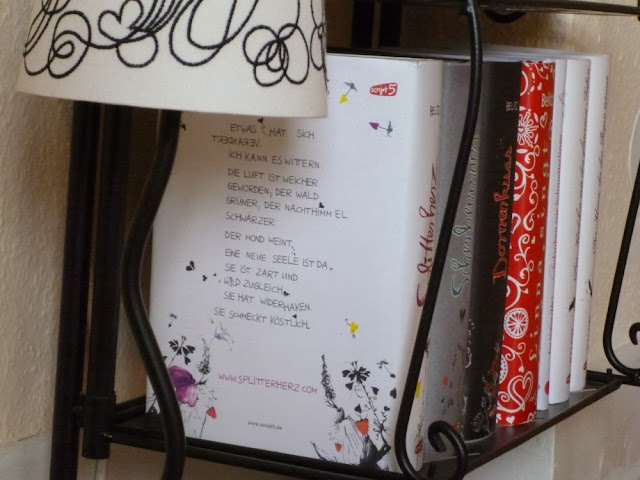 script5
ETWAS HAT SICH
VERÄNDERT.
ICH KANN ES WITTERN
DIE LUFT IST WEICHER
GEWORDEN, DER WALD
GRÜNER, DER NACHTHIMMEL
SCHWÄRZER.
DER MOND WEINT.
EINE NEUE SEELE IST DA.
SIE IST ZART UND
WILD ZUGLEICH.
SIE HAT WIDERHAKEN
SIE SCHMECKT KÖSTLICH.
WWW.SPLITTERHERZ.COM
www.script5.de
Splitterherz
Scherbenmond
Dornenkuss
Linna singt